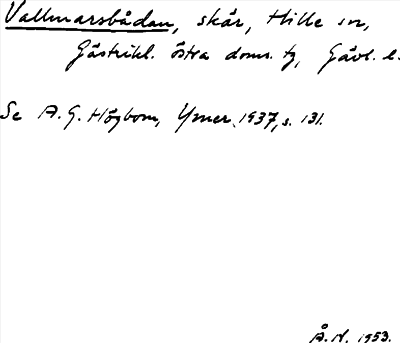 Vallmarsbådan, skär, Hille sn,
Gästrikl. östra doms. tg, Gävl. l.
Se A. G. Högbom, Ymer 1937, s. 131.
Å. N. 1953.